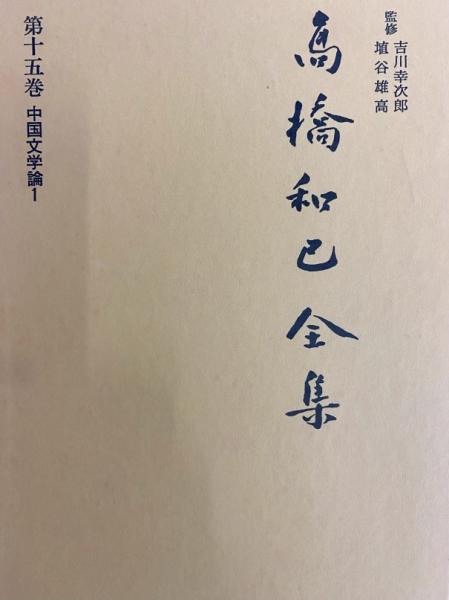 監修 吉川幸次郎
埴谷雄高
高橋和巳全集
第十五巻 中国文学論1